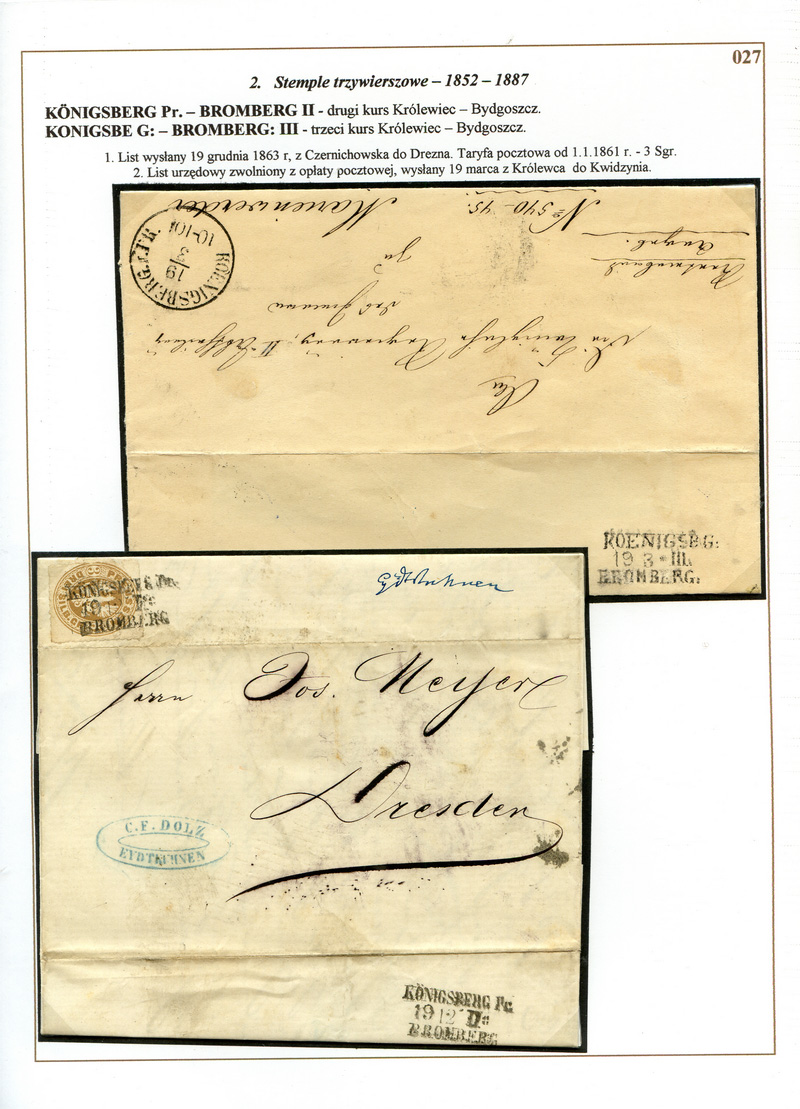 027
2. Stemple trzywierszowe – 1852 – 1887
KÖNIGSBERG Pr. – BROMBERG II - drugi kurs Królewiec – Bydgoszcz.
KONIGSBE G: – BROMBERG: III - trzeci kurs Królewiec – Bydgoszcz.
1. List wysłany 19 grudnia 1863 r, z Czernichowska do Drezna. Taryfa pocztowa od 1.1.1861 r. - 3 Sgr.
2. List urzędowy zwolniony z opłaty pocztowej, wysłany 19 marca z Królewca do Kwidzynia.
Marienwerder
No 540. 45.
KOENIGSBERG I. PR.
19
3
10-10
KOENIGSBG:
19 3 III.
BROMBERG:
KÖNIGSBERG Pr.
19
BROMBERG
Eydtkuhnen
Herrn Jos. Meyer
Dresden
C.F. DOLZ
EYDTKUHNEN
KÖNIGSBERG Pr.
19 12 II:
BROMBERG